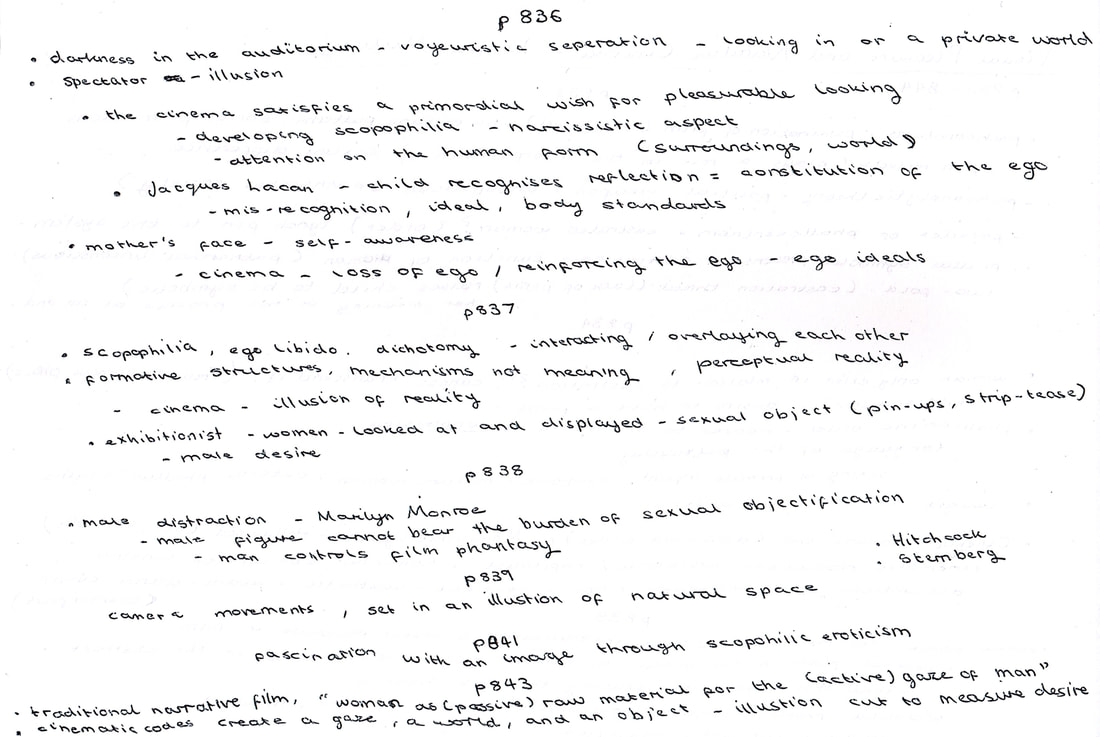 p 836
• darkness in the auditorium - voyeuristic seperation - looking in or a private world
• Spectator - illusion
• the cinema satisfies a primordial wish for pleasurable looking
- developing scopophilia - narcissistic aspect
- attention on the human form (surroundings, world)
• Jacques Lacan - child recognises reflection = constitution of the ego
- mis-recognition, ideal, body standards
• mother's face - self-awareness
- cinema - loss of ego / reinforcing the ego - ego ideals
p837
• scopophilia, ego libido. dichotomy - interacting / overlaying each other
• formative structures, mechanisms not meaning, perceptual reality
- cinema - illusion of reality
• exhibitionist - women - looked at and displayed - sexual object (pin-ups, strip-tease)
- male desire
p838
• male distraction - Marilyn Monroe
- male figure cannot bear the burden of sexual objectification
- man controls film phantasy
• Hitchcock
• Sternberg
p839
camera movements, set in an illustion of natural space
p841
fascination with an image through scopohilic eroticism
p843
• traditional narrative film, "woman as (passive) raw material for the (active) gaze of man"
• cinematic codes create a gaze, a world, and an object - illustion cut to measure desire